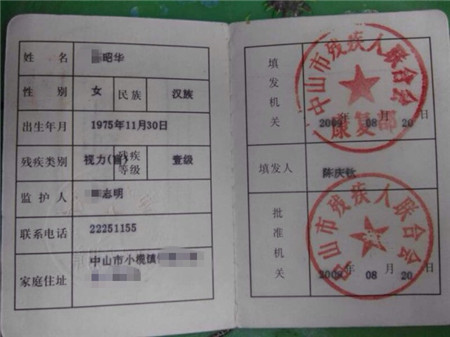 姓 名 昭华
性 别 女 民族 汉族
出生年月 1975年11月30日
残疾类别 视力(盲) 残疾等级 壹级
监护人 志明
联系电话 22251155
家庭住址 中山市小榄镇
填发机关
中山市残疾人联合会
康复部
年 08 月 20
填发人 陈庆
批准机关
中山市残疾人联合会
2009 年 08 月 20